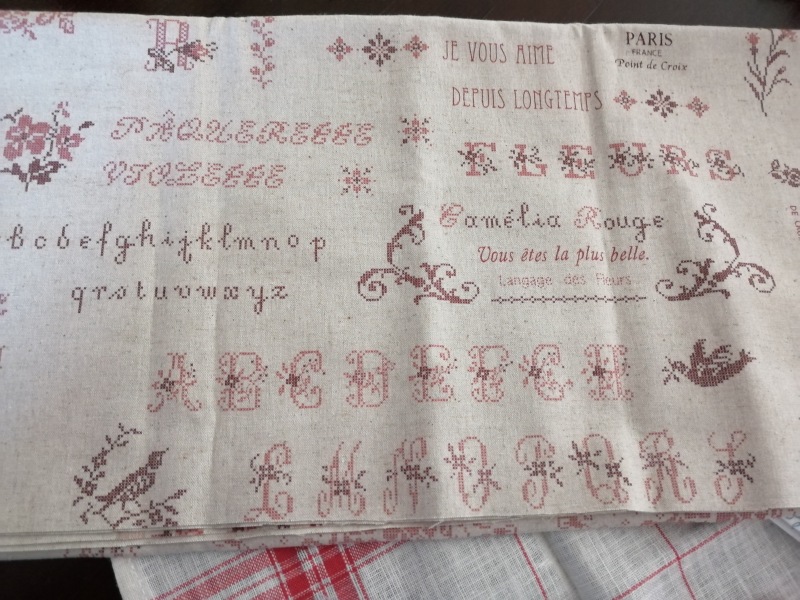 R
JE VOUS AIME
DEPUIS LONGTEMPS
PARIS
FRANCE
Point de Croix
PÂQUERETTE
VIOLETTE
FLEURS
Camélia Rouge
Vous êtes la plus belle.
Langage des Fleurs
b c d e f g h i j k l m n o p
q r s t u v w x y z
A B C D E F G H
L M N O P Q R S